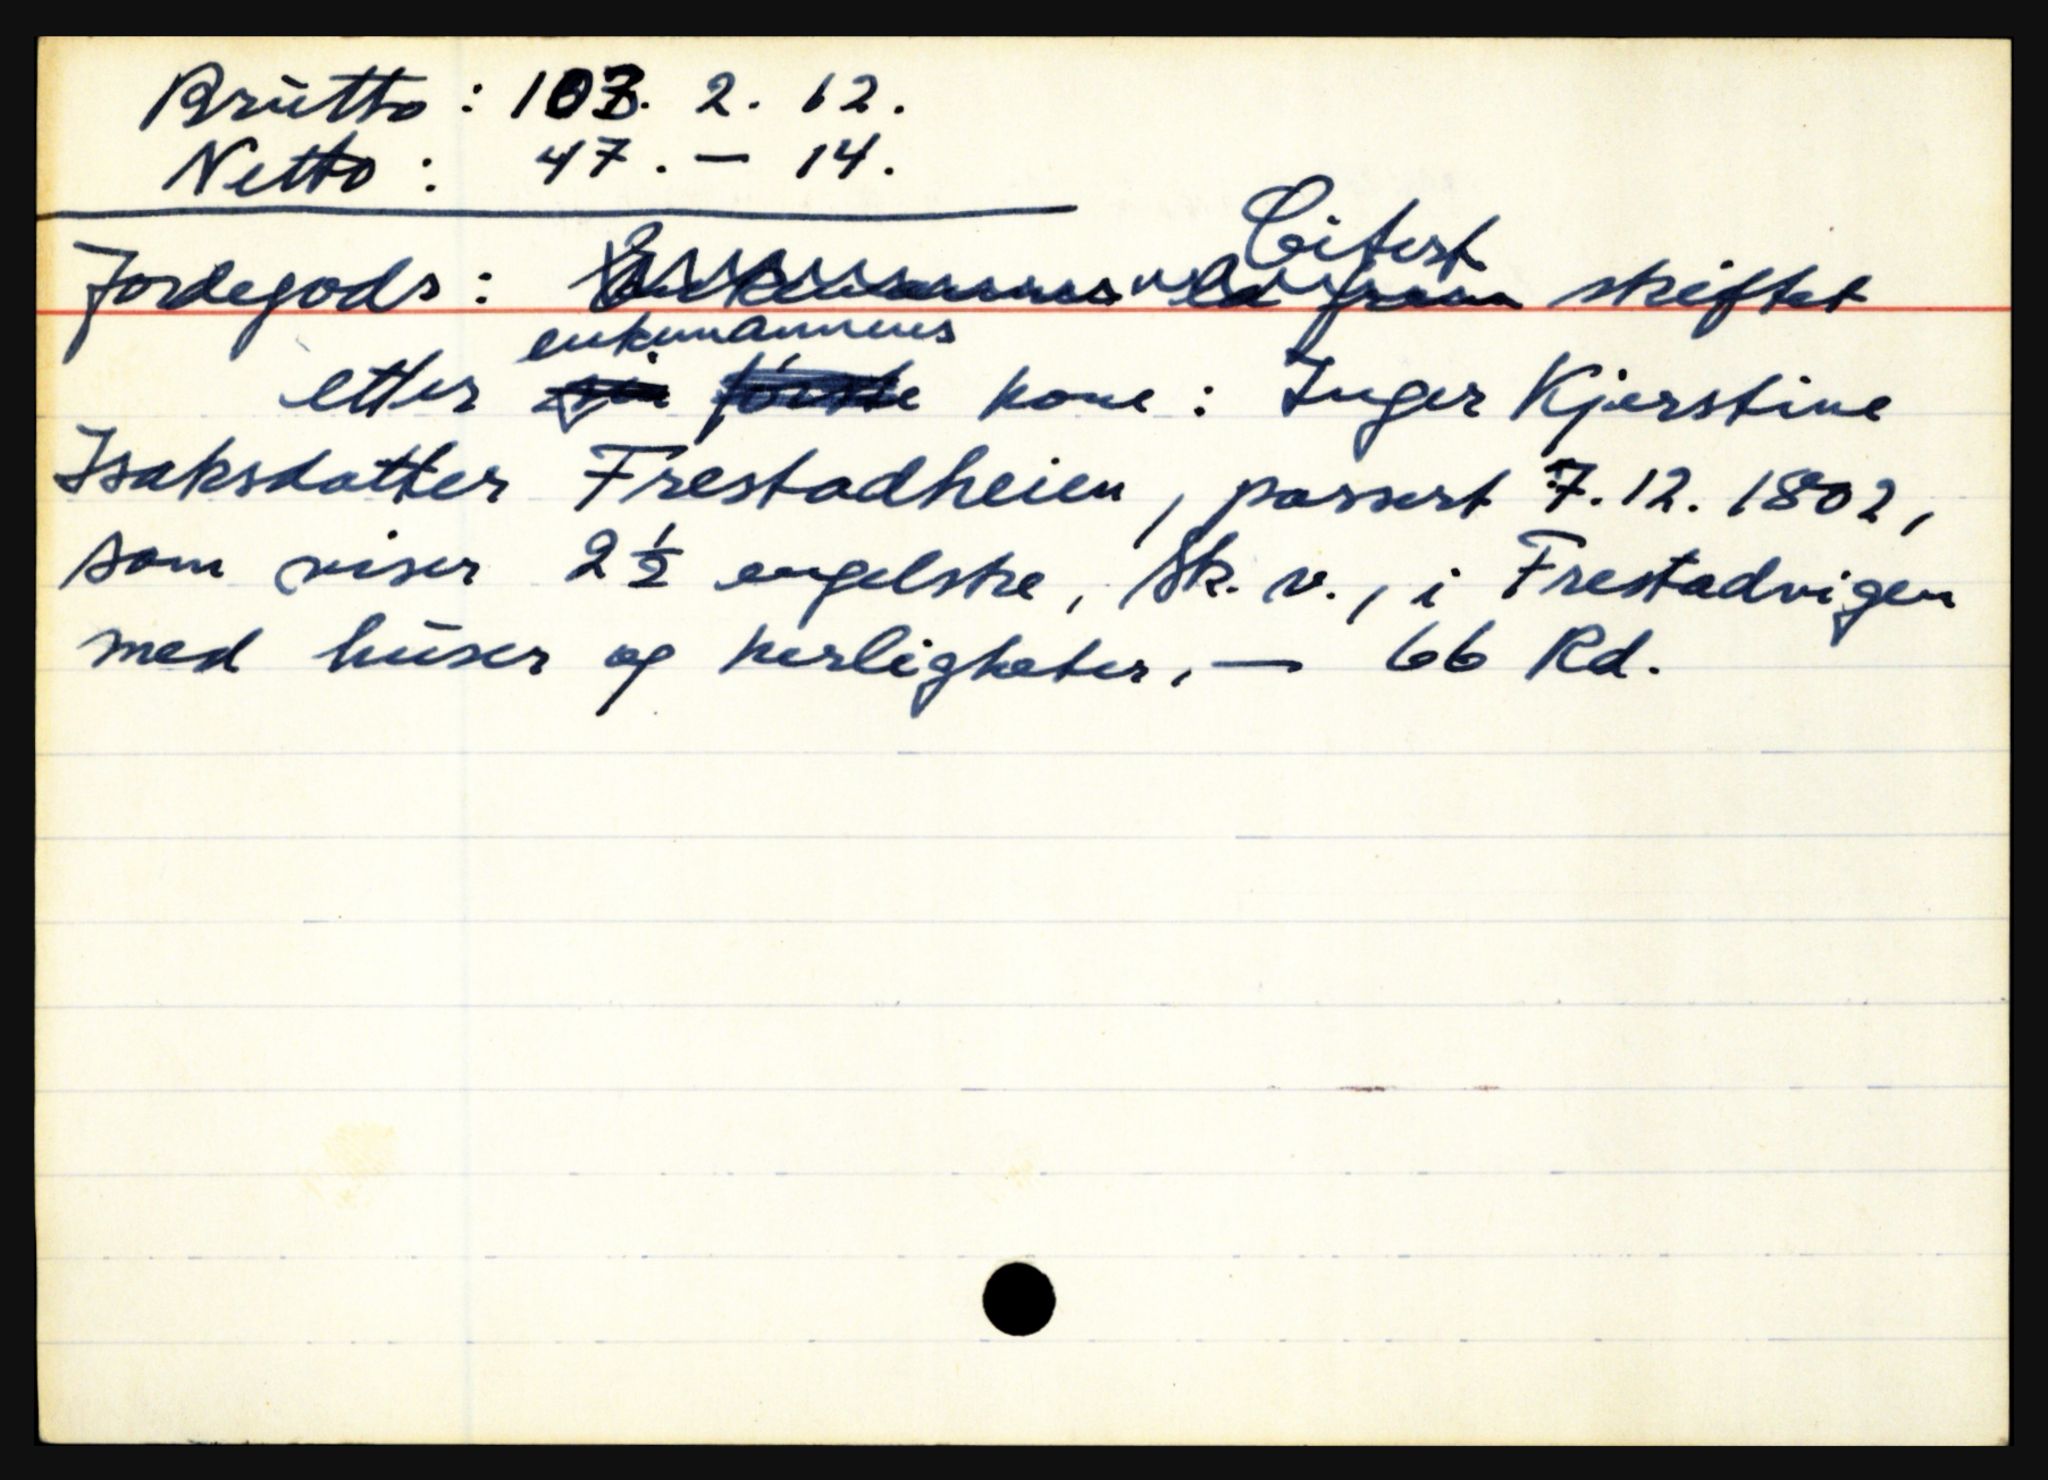 Brutto: 103. 2. 12.
Netto: 47. — 14.
Citert
Jordegods: Enkemannen la frem skiftet
enkemannens
etter sin første kone: Inger Kjerstine
Isaksdatter Frestadheien, passert 7.12.1802,
som viser 2½ engelske, Sk. v., i Frestadvigen
med huser og herligheter, — 66 Rd.